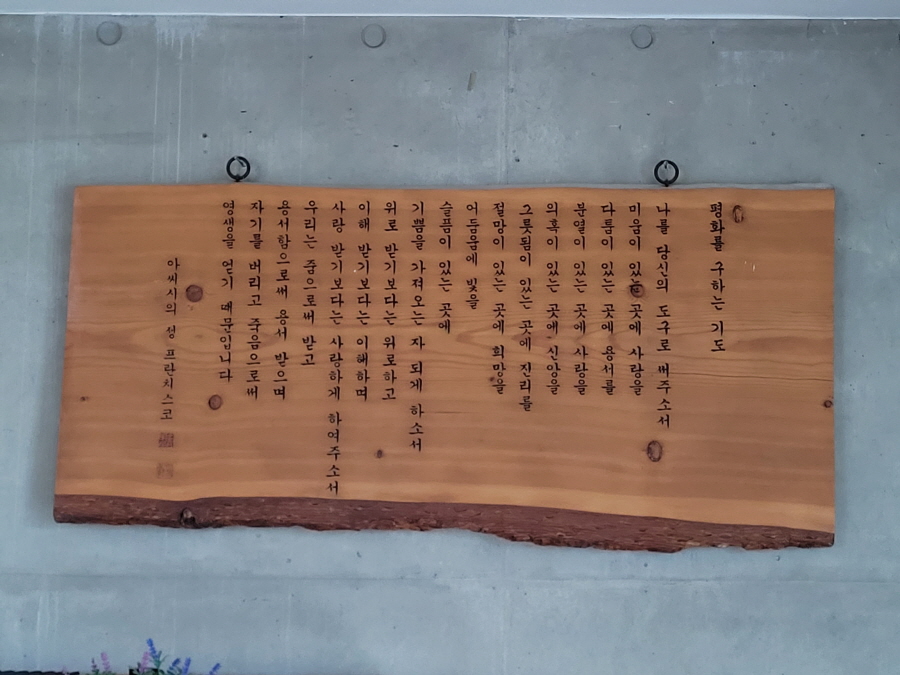 평화를 구하는 기도
나를 당신의 도구로 써주소서
미움이 있는 곳에 사랑을
다툼이 있는 곳에 용서를
분열이 있는 곳에 사랑을
의혹이 있는 곳에 신앙을
그릇됨이 있는 곳에 진리를
절망이 있는 곳에 희망을
어둠움에 빛을
슬픔이 있는 곳에
기쁨을 가져오는 자 되게 하소서
위로 받기보다는 위로하고
이해 받기보다는 이해하며
사랑 받기보다는 사랑하게 하여주소서
우리는 줌으로써 받고
용서함으로써 용서 받으며
자기를 버리고 죽음으로써
영생을 얻기 때문입니다
아씨시의 성 프란치스코